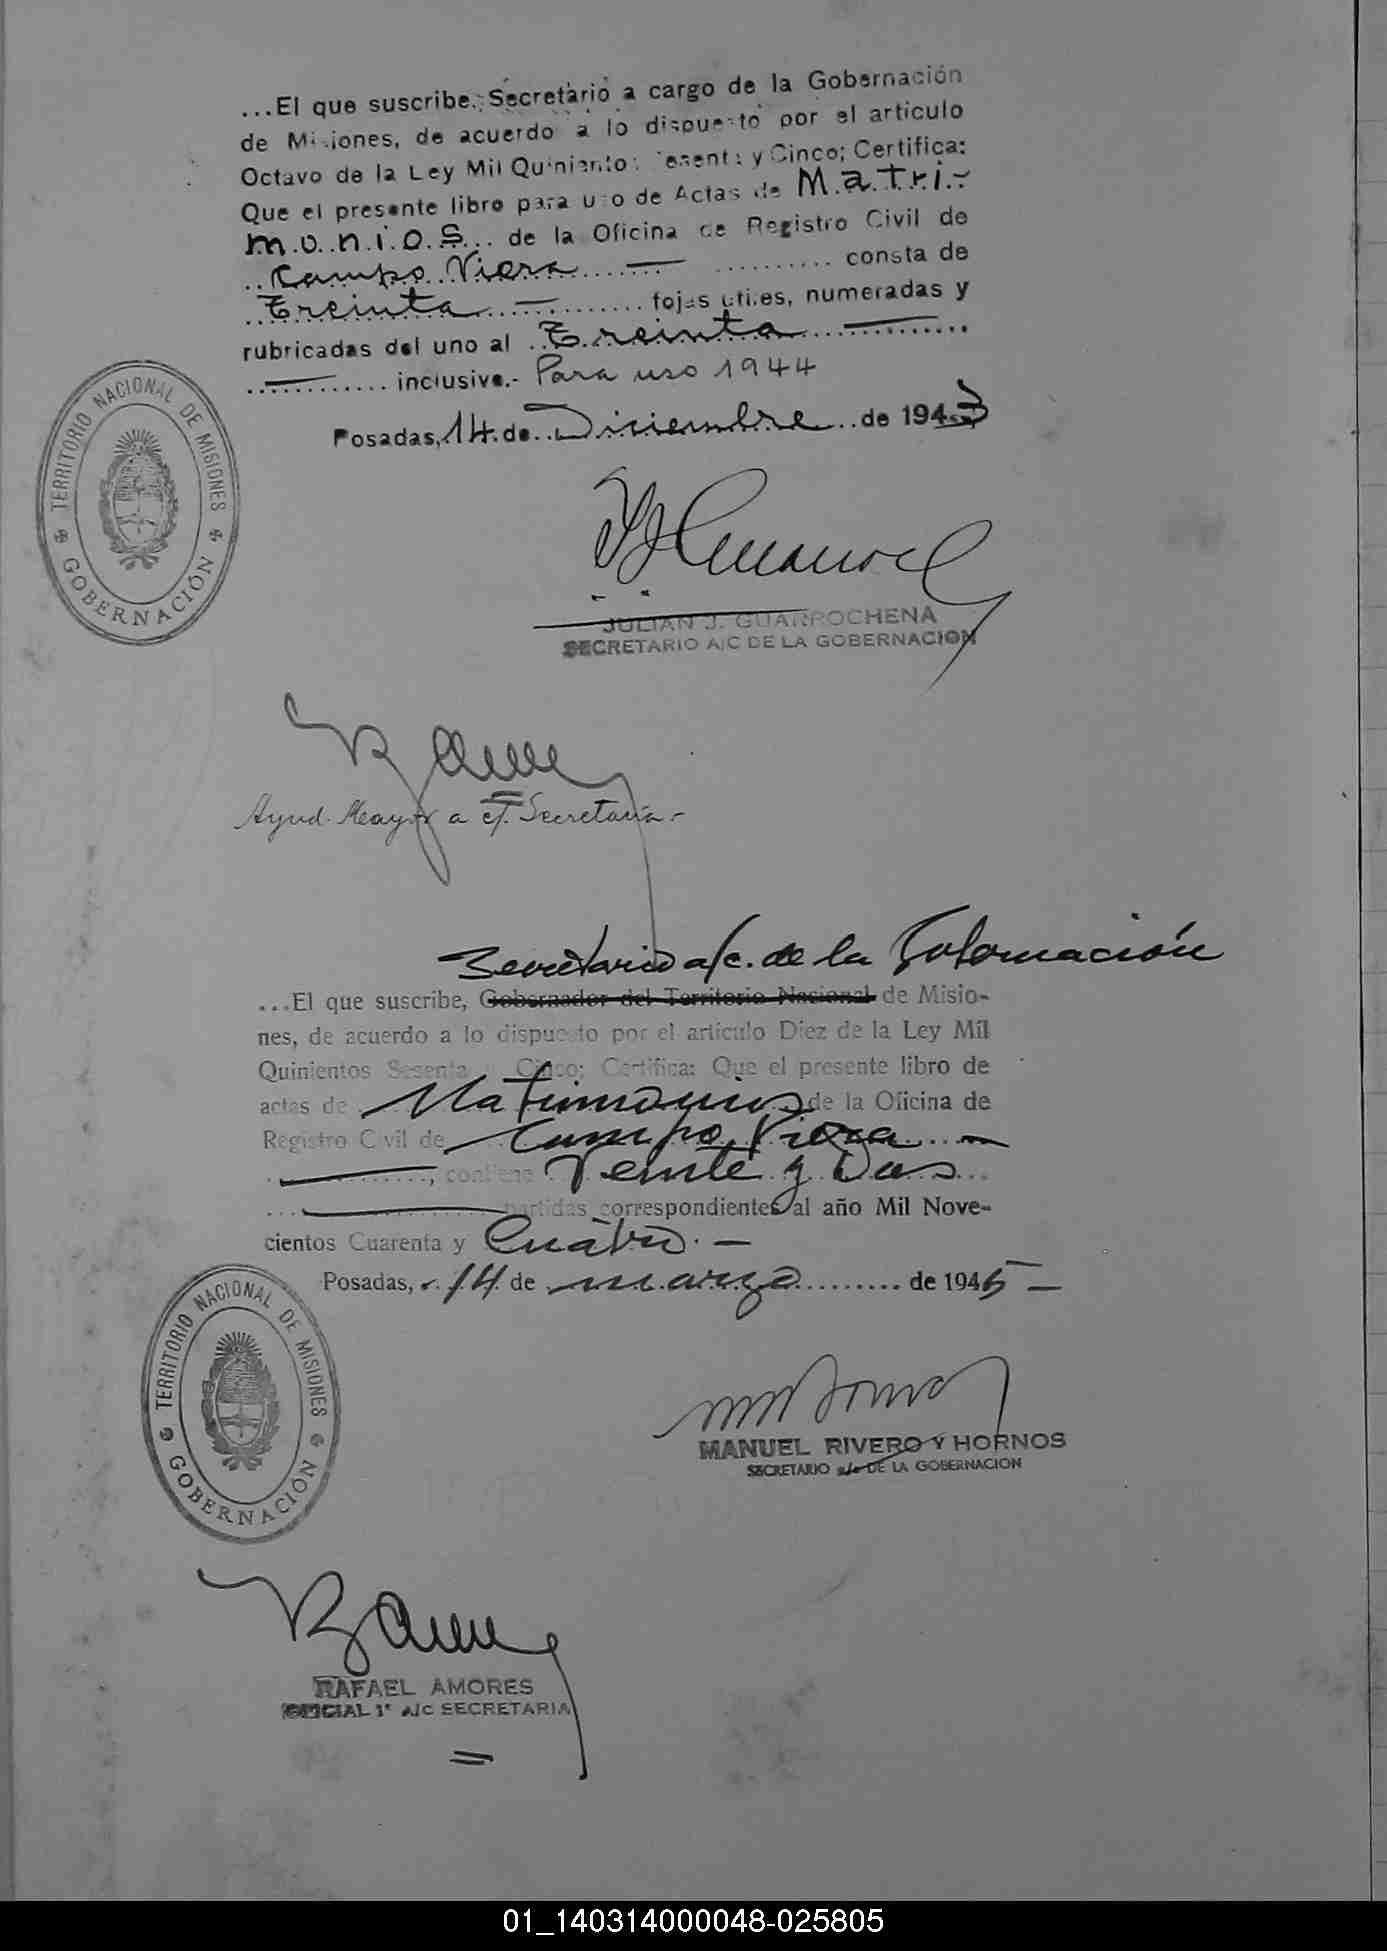 ...El que suscribe, Secretario a cargo de la Gobernación
de Misiones, de acuerdo a lo dispuesto por el artículo
Octavo de la Ley Mil Quinientos Sesenta y Cinco; Certifica:
Que el presente libro para uso de Actas de Matri-
monios... de la Oficina de Registro Civil de
..Campo Viera.......—.......... consta de
..Treinta......—........ fojas utiles, numeradas y
rubricadas del uno al ..Treinta....—..........
..—.......... inclusive.- Para uso 1944
Posadas, 14 de Diciembre .. de 1943
TERRITORIO NACIONAL DE MISIONES
GOBERNACIÓN
JULIAN J. GUARROCHENA
SECRETARIO A/C DE LA GOBERNACION
Ayud. Mayor a cj. Secretaría.-
Secretario a/c. de la Gobernación
...El que suscribe, Gobernador del Territorio Nacional de Misio-
nes, de acuerdo a lo dispuesto por el artículo Diez de la Ley Mil
Quinientos Sesenta y Cinco; Certifica: Que el presente libro de
actas de Matrimonios de la Oficina de
Registro Civil de Campo Viera....—
.—.........., contiene Veinte y Dos...
....—.......... partidas correspondientes al año Mil Nove-
cientos Cuarenta y Cuatro.-—
Posadas, 14 de marzo ........ de 1945—
TERRITORIO NACIONAL DE MISIONES
GOBERNACIÓN
MANUEL RIVERO Y HORNOS
SECRETARIO a/c DE LA GOBERNACION
RAFAEL AMORES
OFICIAL 1º A/C SECRETARIA
01_140314000048-025805